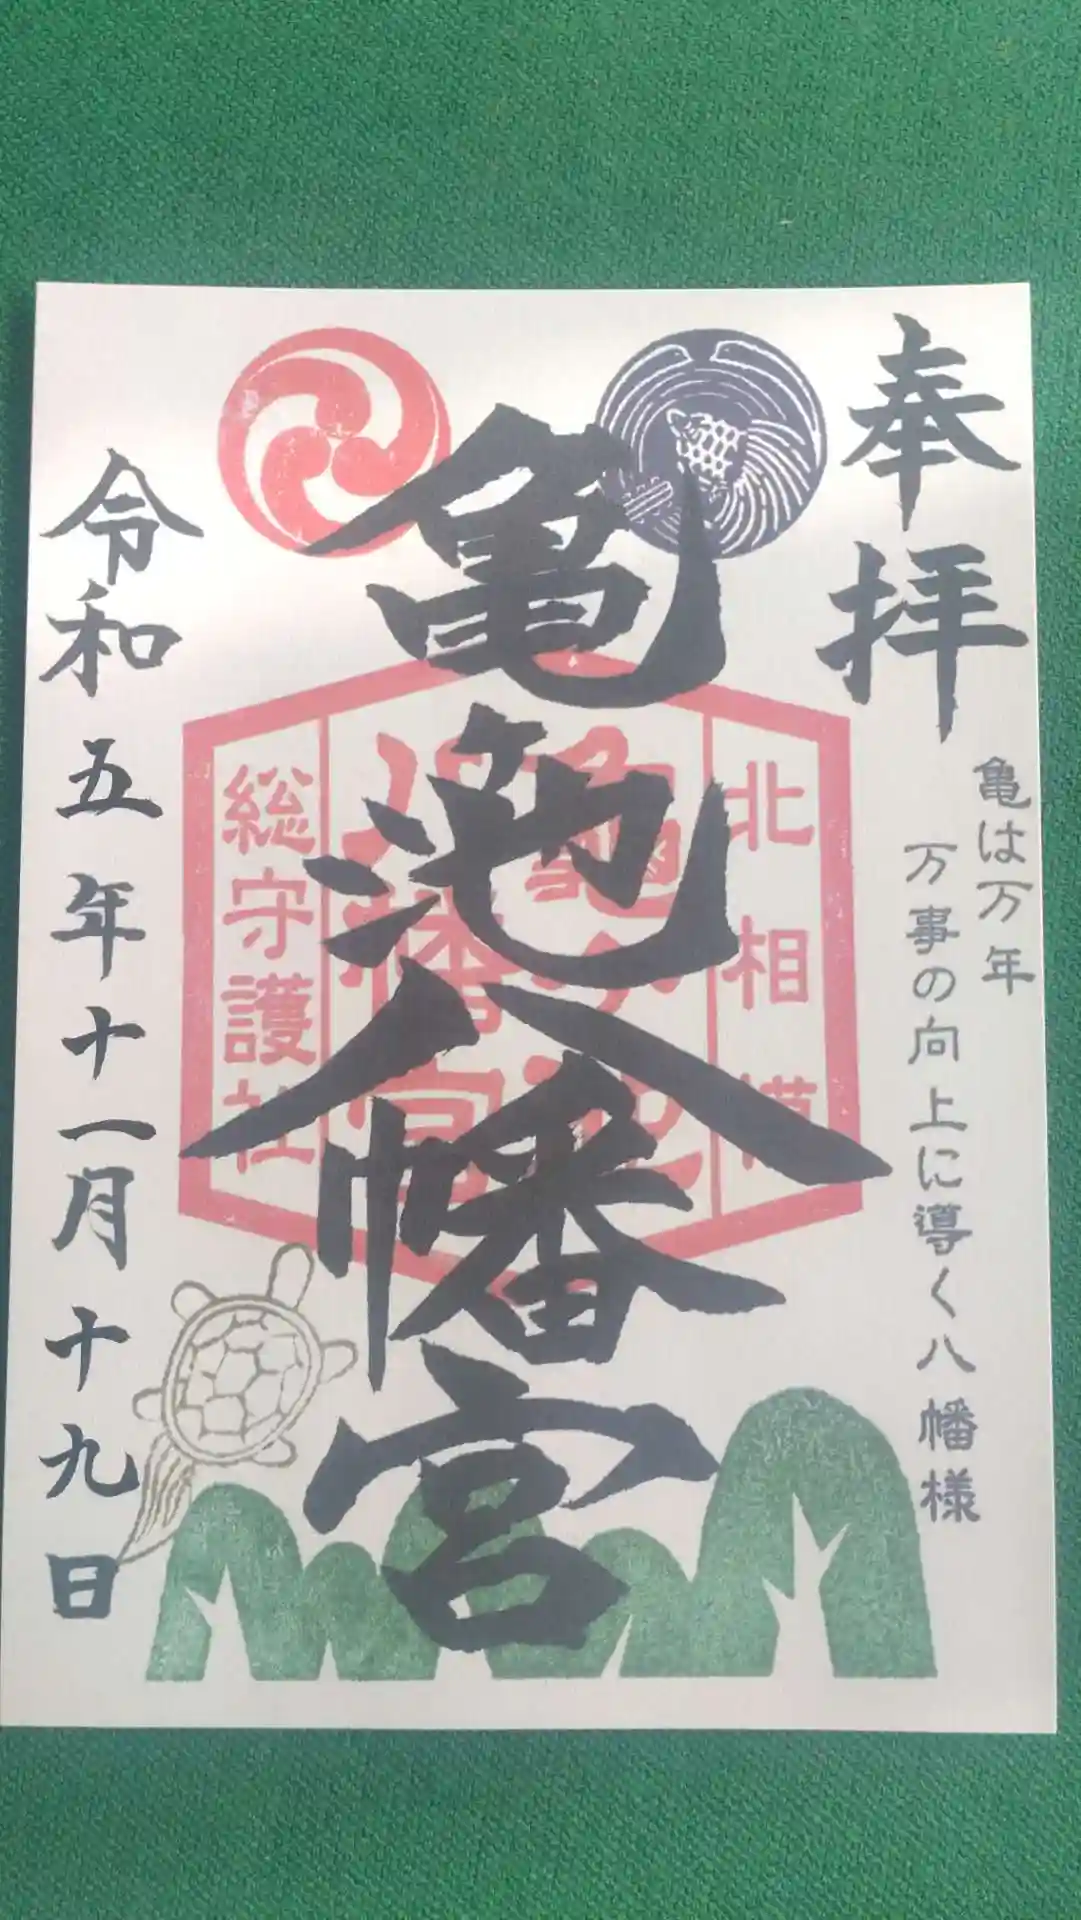 奉拝
亀は万年
万事の向上に導く八幡様
亀池八幡宮
北相模
亀ヶ池
八幡宮
総守護社
令和五年十一月十九日